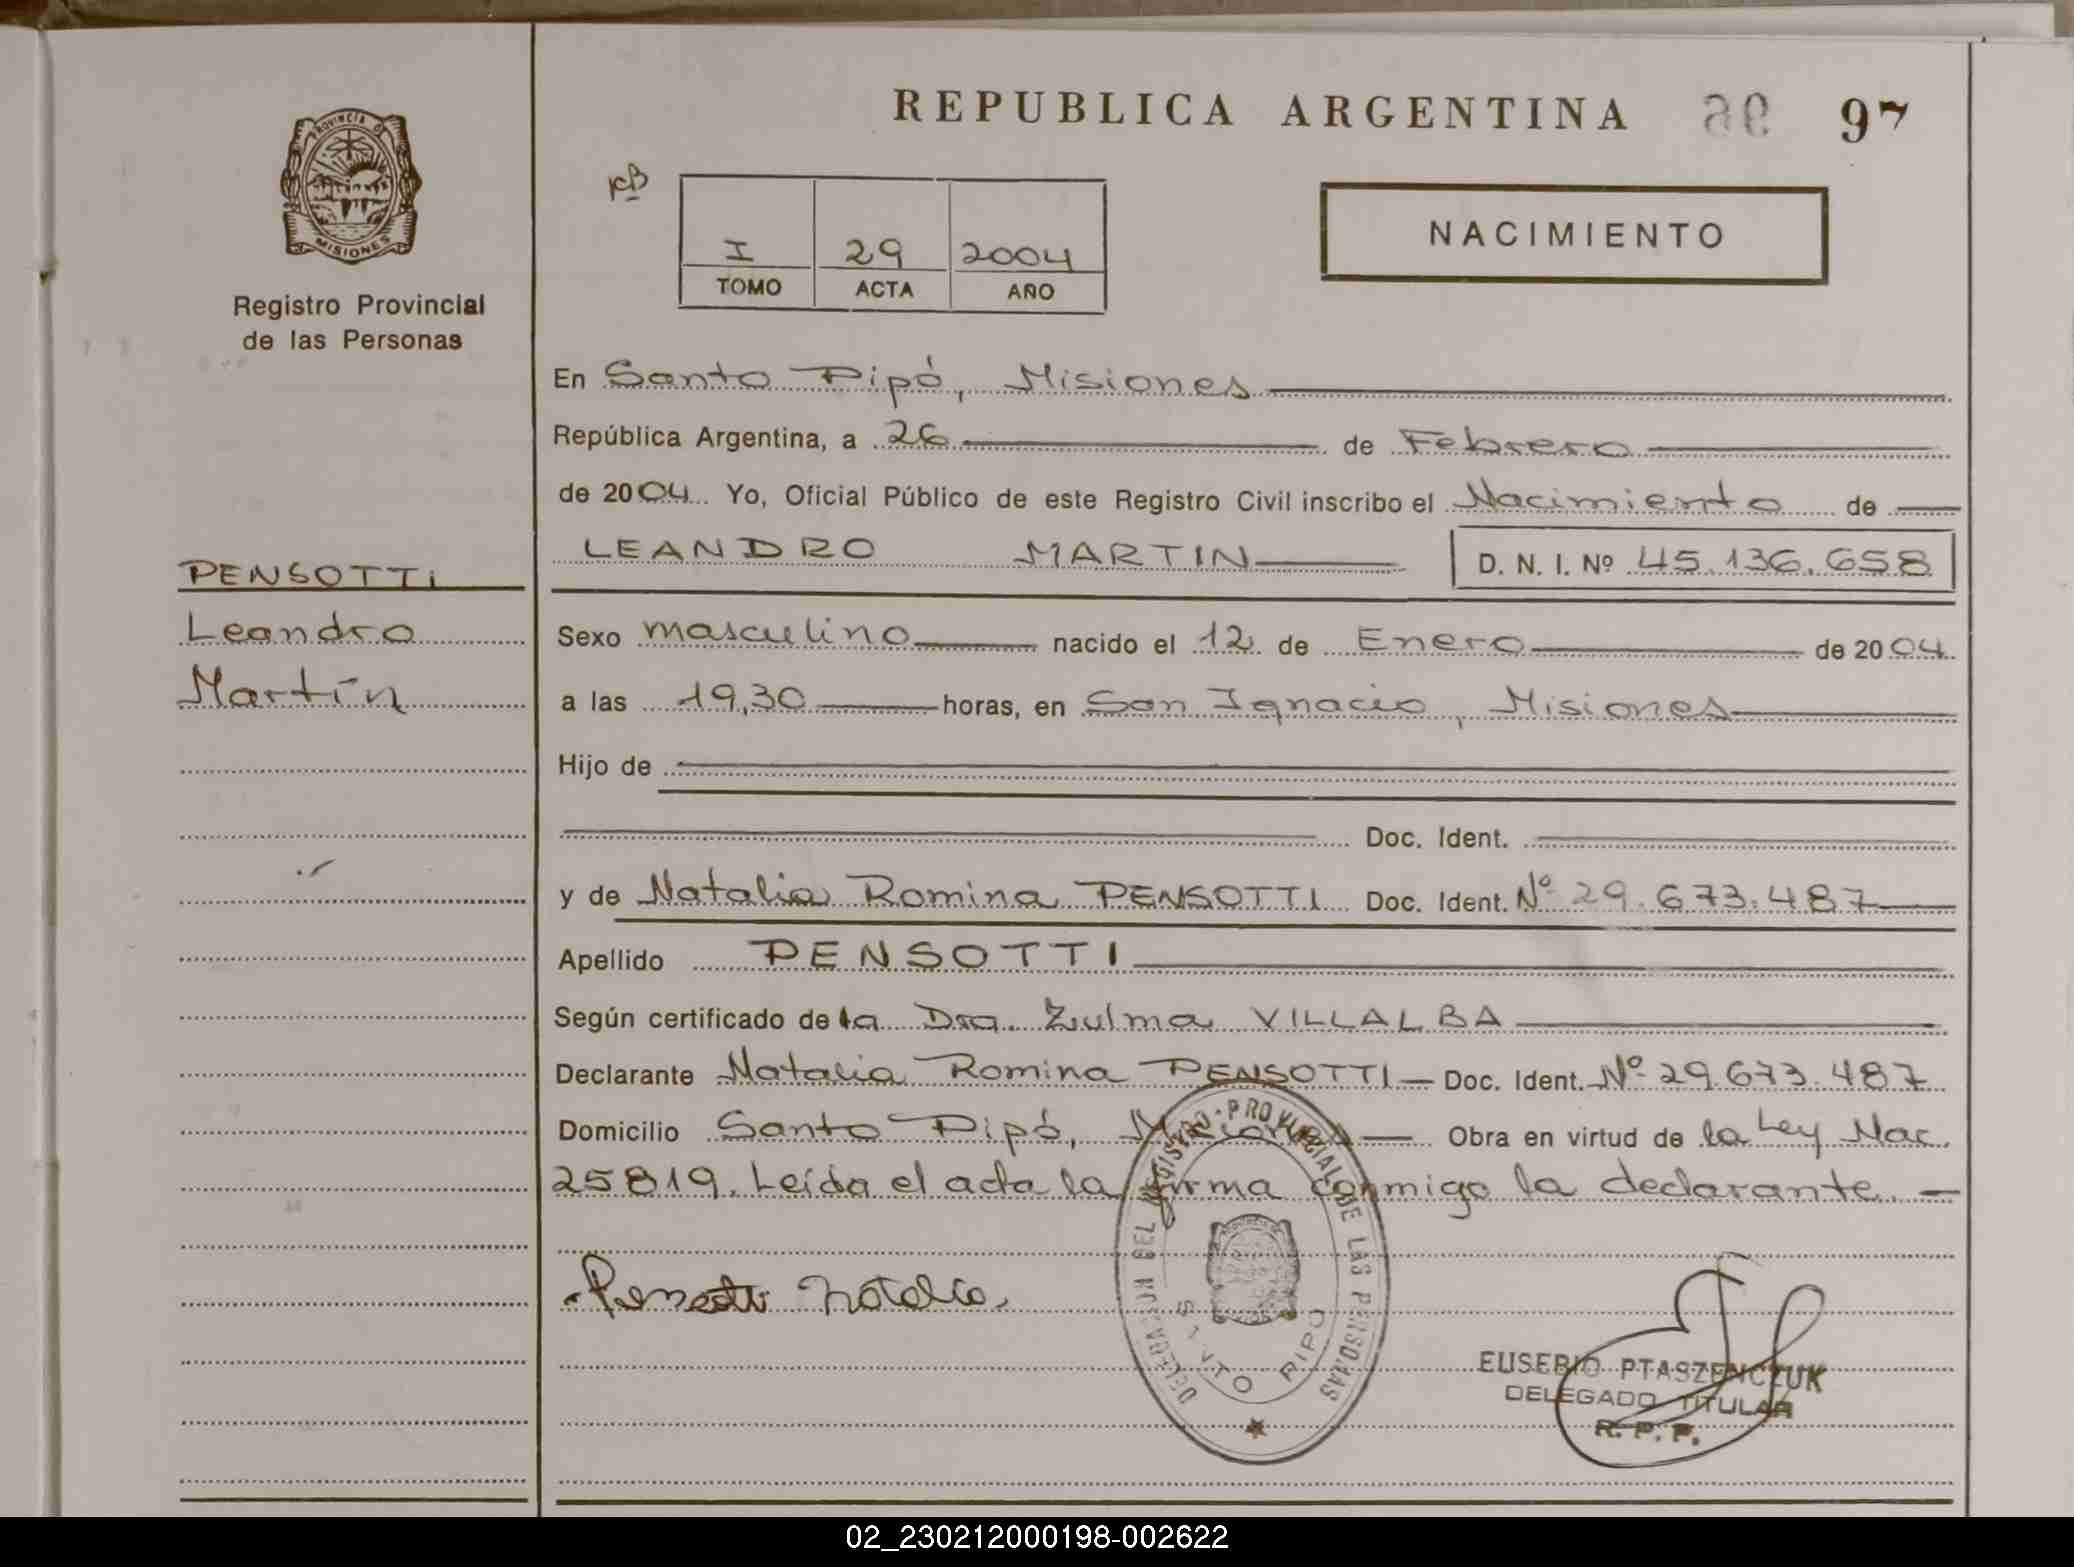 REPUBLICA ARGENTINA 96 97
PROVINCIA DE
MISIONES
Registro Provincial
de las Personas
I 29 2004
TOMO ACTA AÑO
NACIMIENTO
En Santo Pipó, Misiones
República Argentina, a 26 de Febrero
de 2004 Yo, Oficial Público de este Registro Civil inscribo el Nacimiento de
LEANDRO MARTIN D. N. I. Nº 45.136.658
PENSOTTi
Leandro
Martín
Sexo masculino nacido el 12 de Enero de 2004
a las 19,30 horas, en San Ignacio, Misiones
Hijo de
Doc. Ident.
y de Natalia Romina PENSOTTI Doc. Ident. Nº 29.673.487
Apellido PENSOTTI
Según certificado de la Dra. Zulma VILLALBA
Declarante Natalia Romina PENSOTTI Doc. Ident. Nº 29.673.487
Domicilio Santo Pipó, Misiones Obra en virtud de la Ley Nac.
25819. Leída el acta la firma conmigo la declarante
Pensotti Natalia
DELEGACION DEL REGISTRO PROVINCIAL DE LAS PERSONAS
SANTO PIPO
EUSEBIO PTASZENCZUK
DELEGADO TITULAR
R. P. P.
02_230212000198-002622